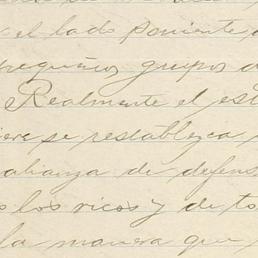 el lado poniente
pequeños grupos d
Realmente el est
se restablezca
alianza de defens
los ricos y de to
la manera que